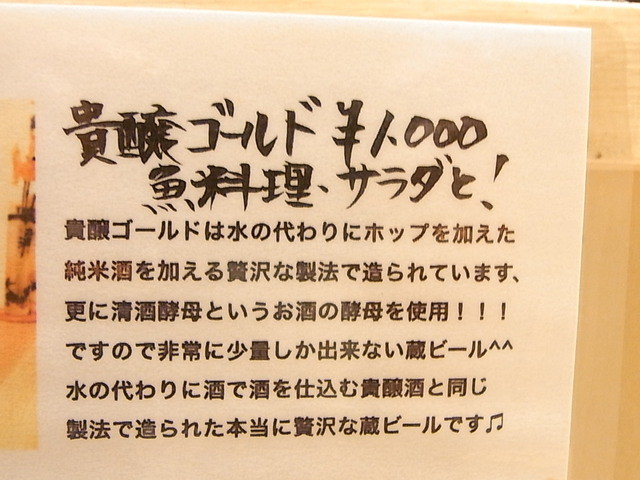 貴醸ゴールド ¥1,000
魚料理、サラダと!
貴醸ゴールドは水の代わりにホップを加えた
純米酒を加える贅沢な製法で造られています、
更に清酒酵母というお酒の酵母を使用！！！
ですので非常に少量しか出来ない蔵ビール^^
水の代わりに酒で酒を仕込む貴醸酒と同じ
製法で造られた本当に贅沢な蔵ビールです♫